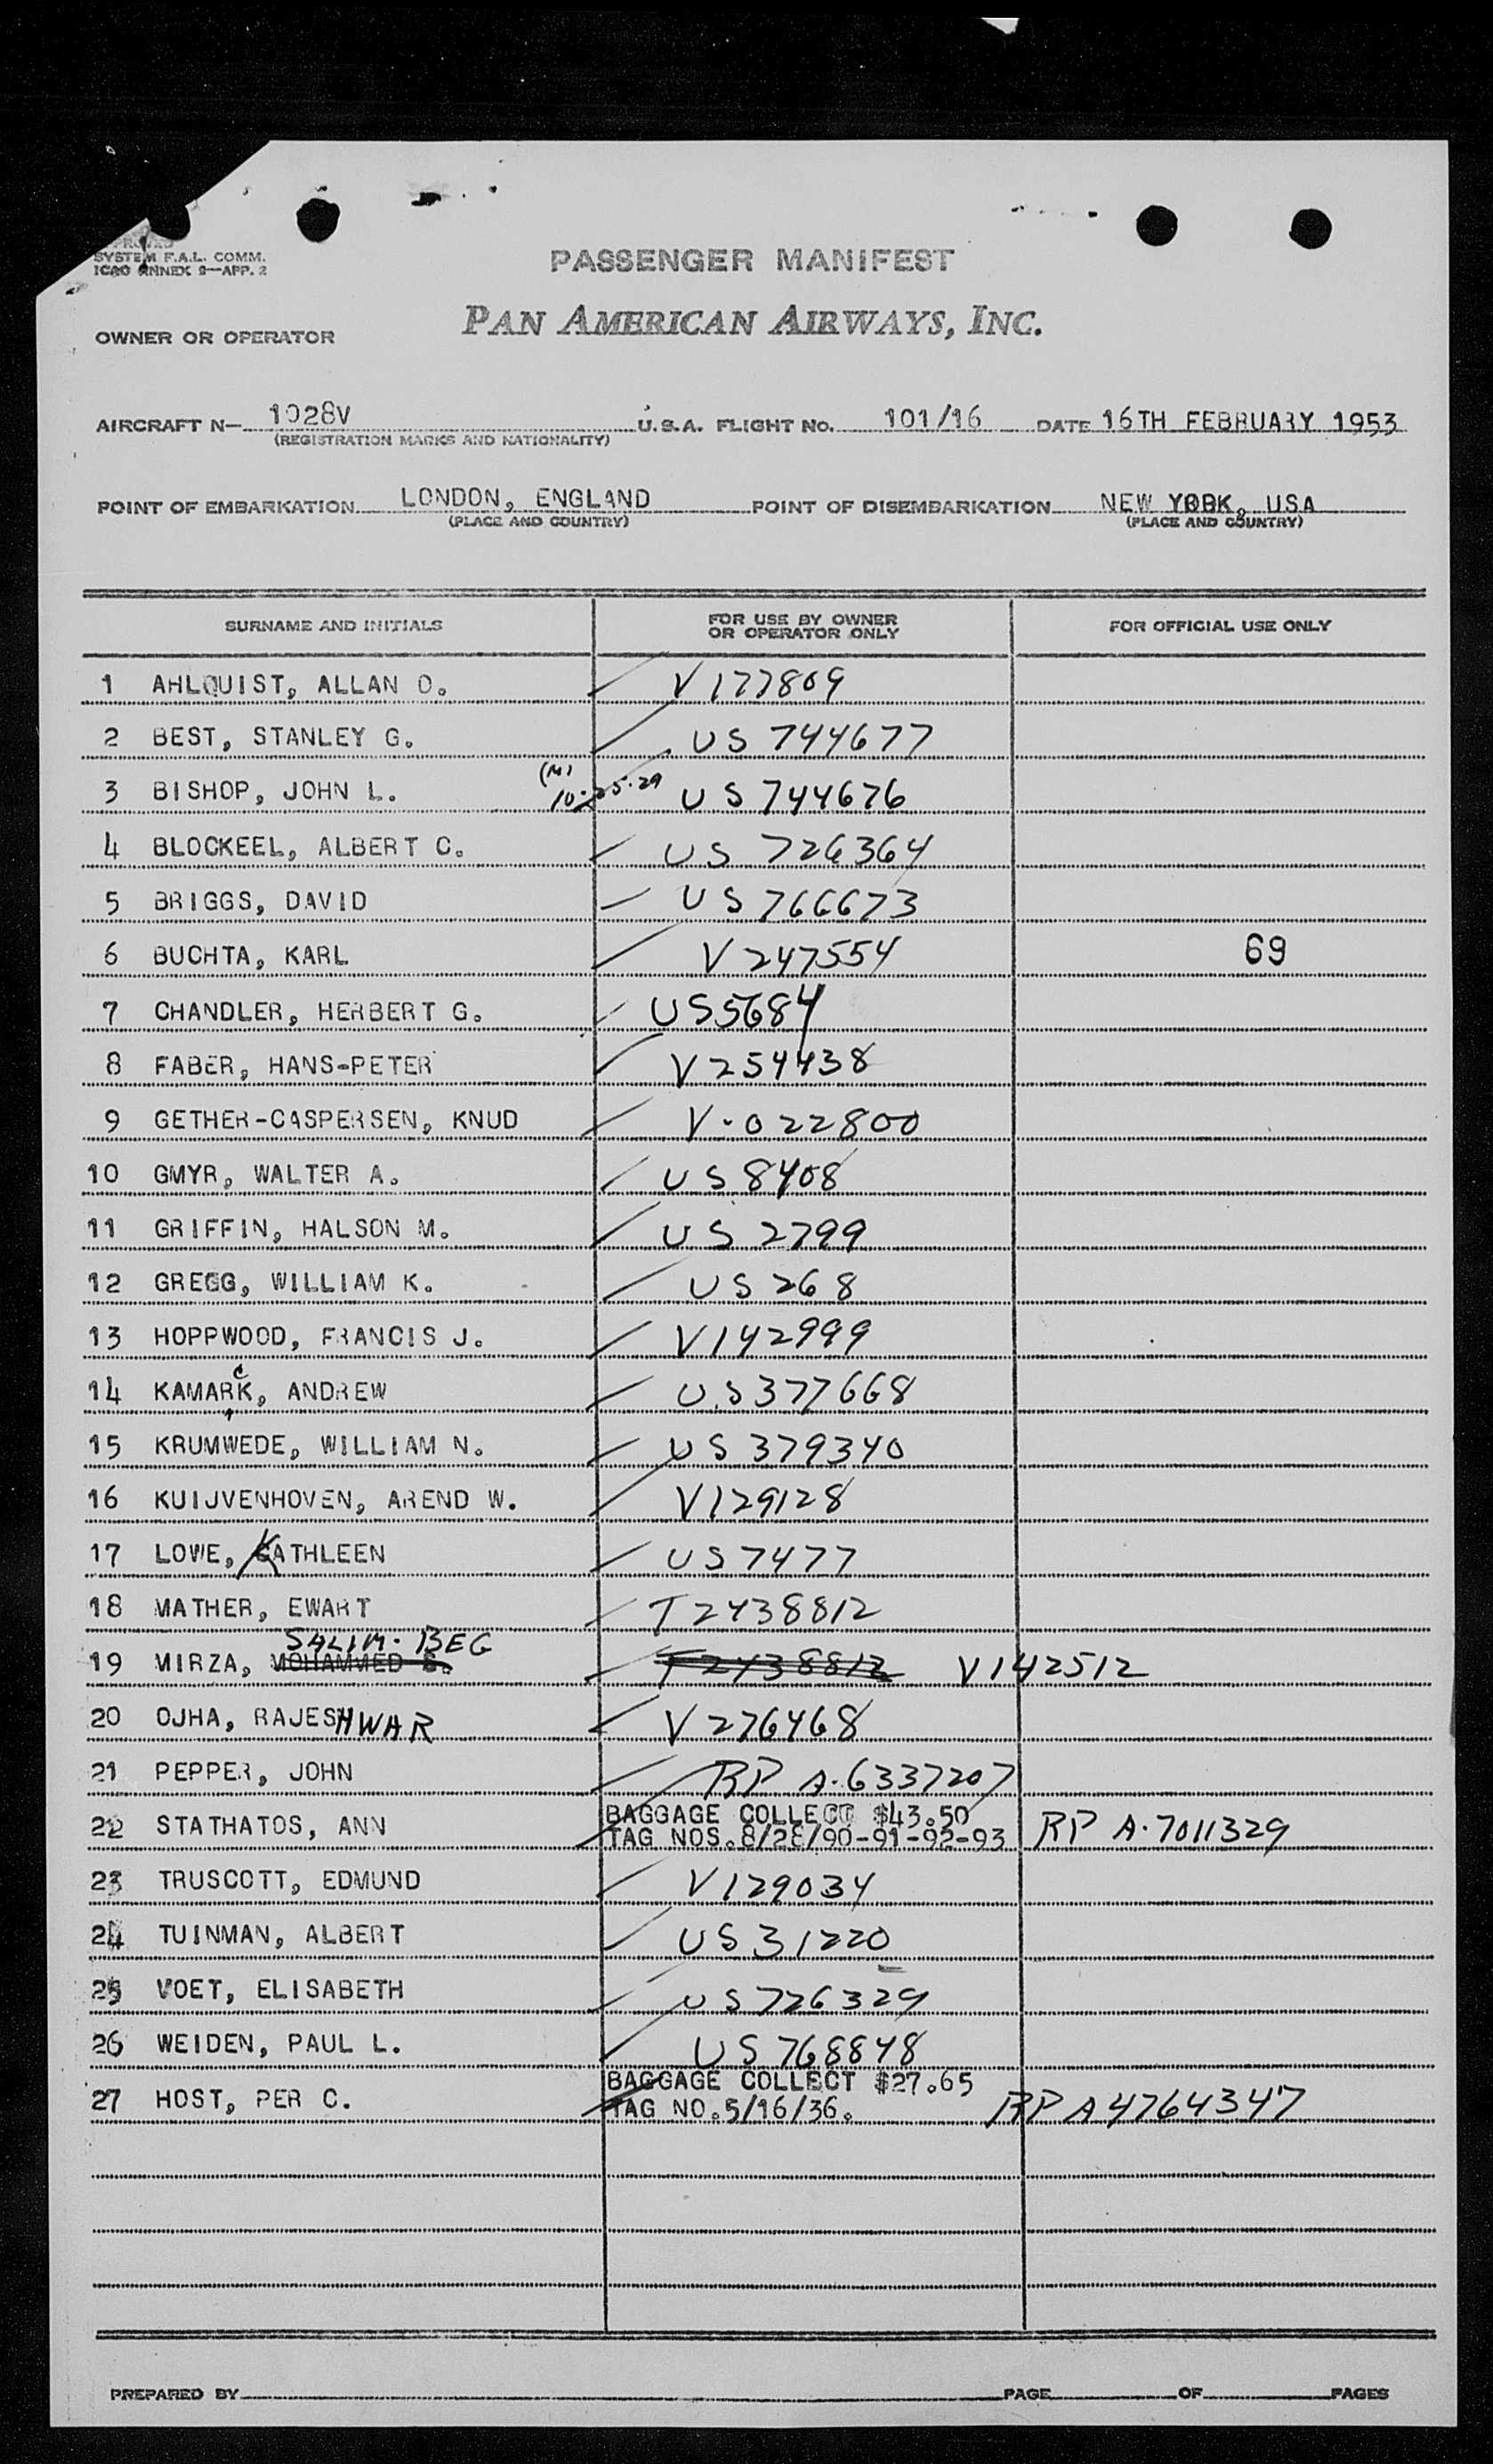 SYSTEM F.A.L. COMM.
ICAO ANNEX 9—APP. 2
PASSENGER MANIFEST
PAN AMERICAN AIRWAYS, INC.
OWNER OR OPERATOR
AIRCRAFT N— 1028V U.S.A. FLIGHT NO. 101/16 DATE 16TH FEBRUARY 1953
(REGISTRATION MARKS AND NATIONALITY)
POINT OF EMBARKATION LONDON, ENGLAND POINT OF DISEMBARKATION NEW YORK, USA
(PLACE AND COUNTRY) (PLACE AND COUNTRY)
SURNAME AND INITIALS FOR USE BY OWNER OR OPERATOR ONLY FOR OFFICIAL USE ONLY
1 AHLQUIST, ALLAN O. V177809
2 BEST, STANLEY G. US 744677
(M)
3 BISHOP, JOHN L. 10-25-29 US 744676
4 BLOCKEEL, ALBERT C. US 726364
5 BRIGGS, DAVID US 766673
6 BUCHTA, KARL V 247554 69
7 CHANDLER, HERBERT G. US5684
8 FABER, HANS-PETER V254438
9 GETHER-CASPERSEN, KNUD V-022800
10 GMYR, WALTER A. US 8408
11 GRIFFIN, HALSON M. US 2799
12 GREGG, WILLIAM K. US 268
13 HOPPWOOD, FRANCIS J. V142999
14 KAMARCK, ANDREW U.S377668
15 KRUMWEDE, WILLIAM N. US 379340
16 KUIJVENHOVEN, AREND W. V129128
17 LOWE, KATHLEEN US7477
18 MATHER, EWART T2438812
SALIM. BEG
19 MIRZA, MOHAMMED S. T2438812 V142512
20 OJHA, RAJESHWAR V276468
21 PEPPER, JOHN RP A-6337207
BAGGAGE COLLECT $43.50
22 STATHATOS, ANN TAG NOS.8/28/90-91-92-93 RP A-7011329
23 TRUSCOTT, EDMUND V129034
24 TUINMAN, ALBERT US31220
25 VOET, ELISABETH US726329
26 WEIDEN, PAUL L. US 768848
BAGGAGE COLLECT $27.65
27 HOST, PER C. TAG NO.5/16/36. RP A4764347
PREPARED BY PAGE OF PAGES